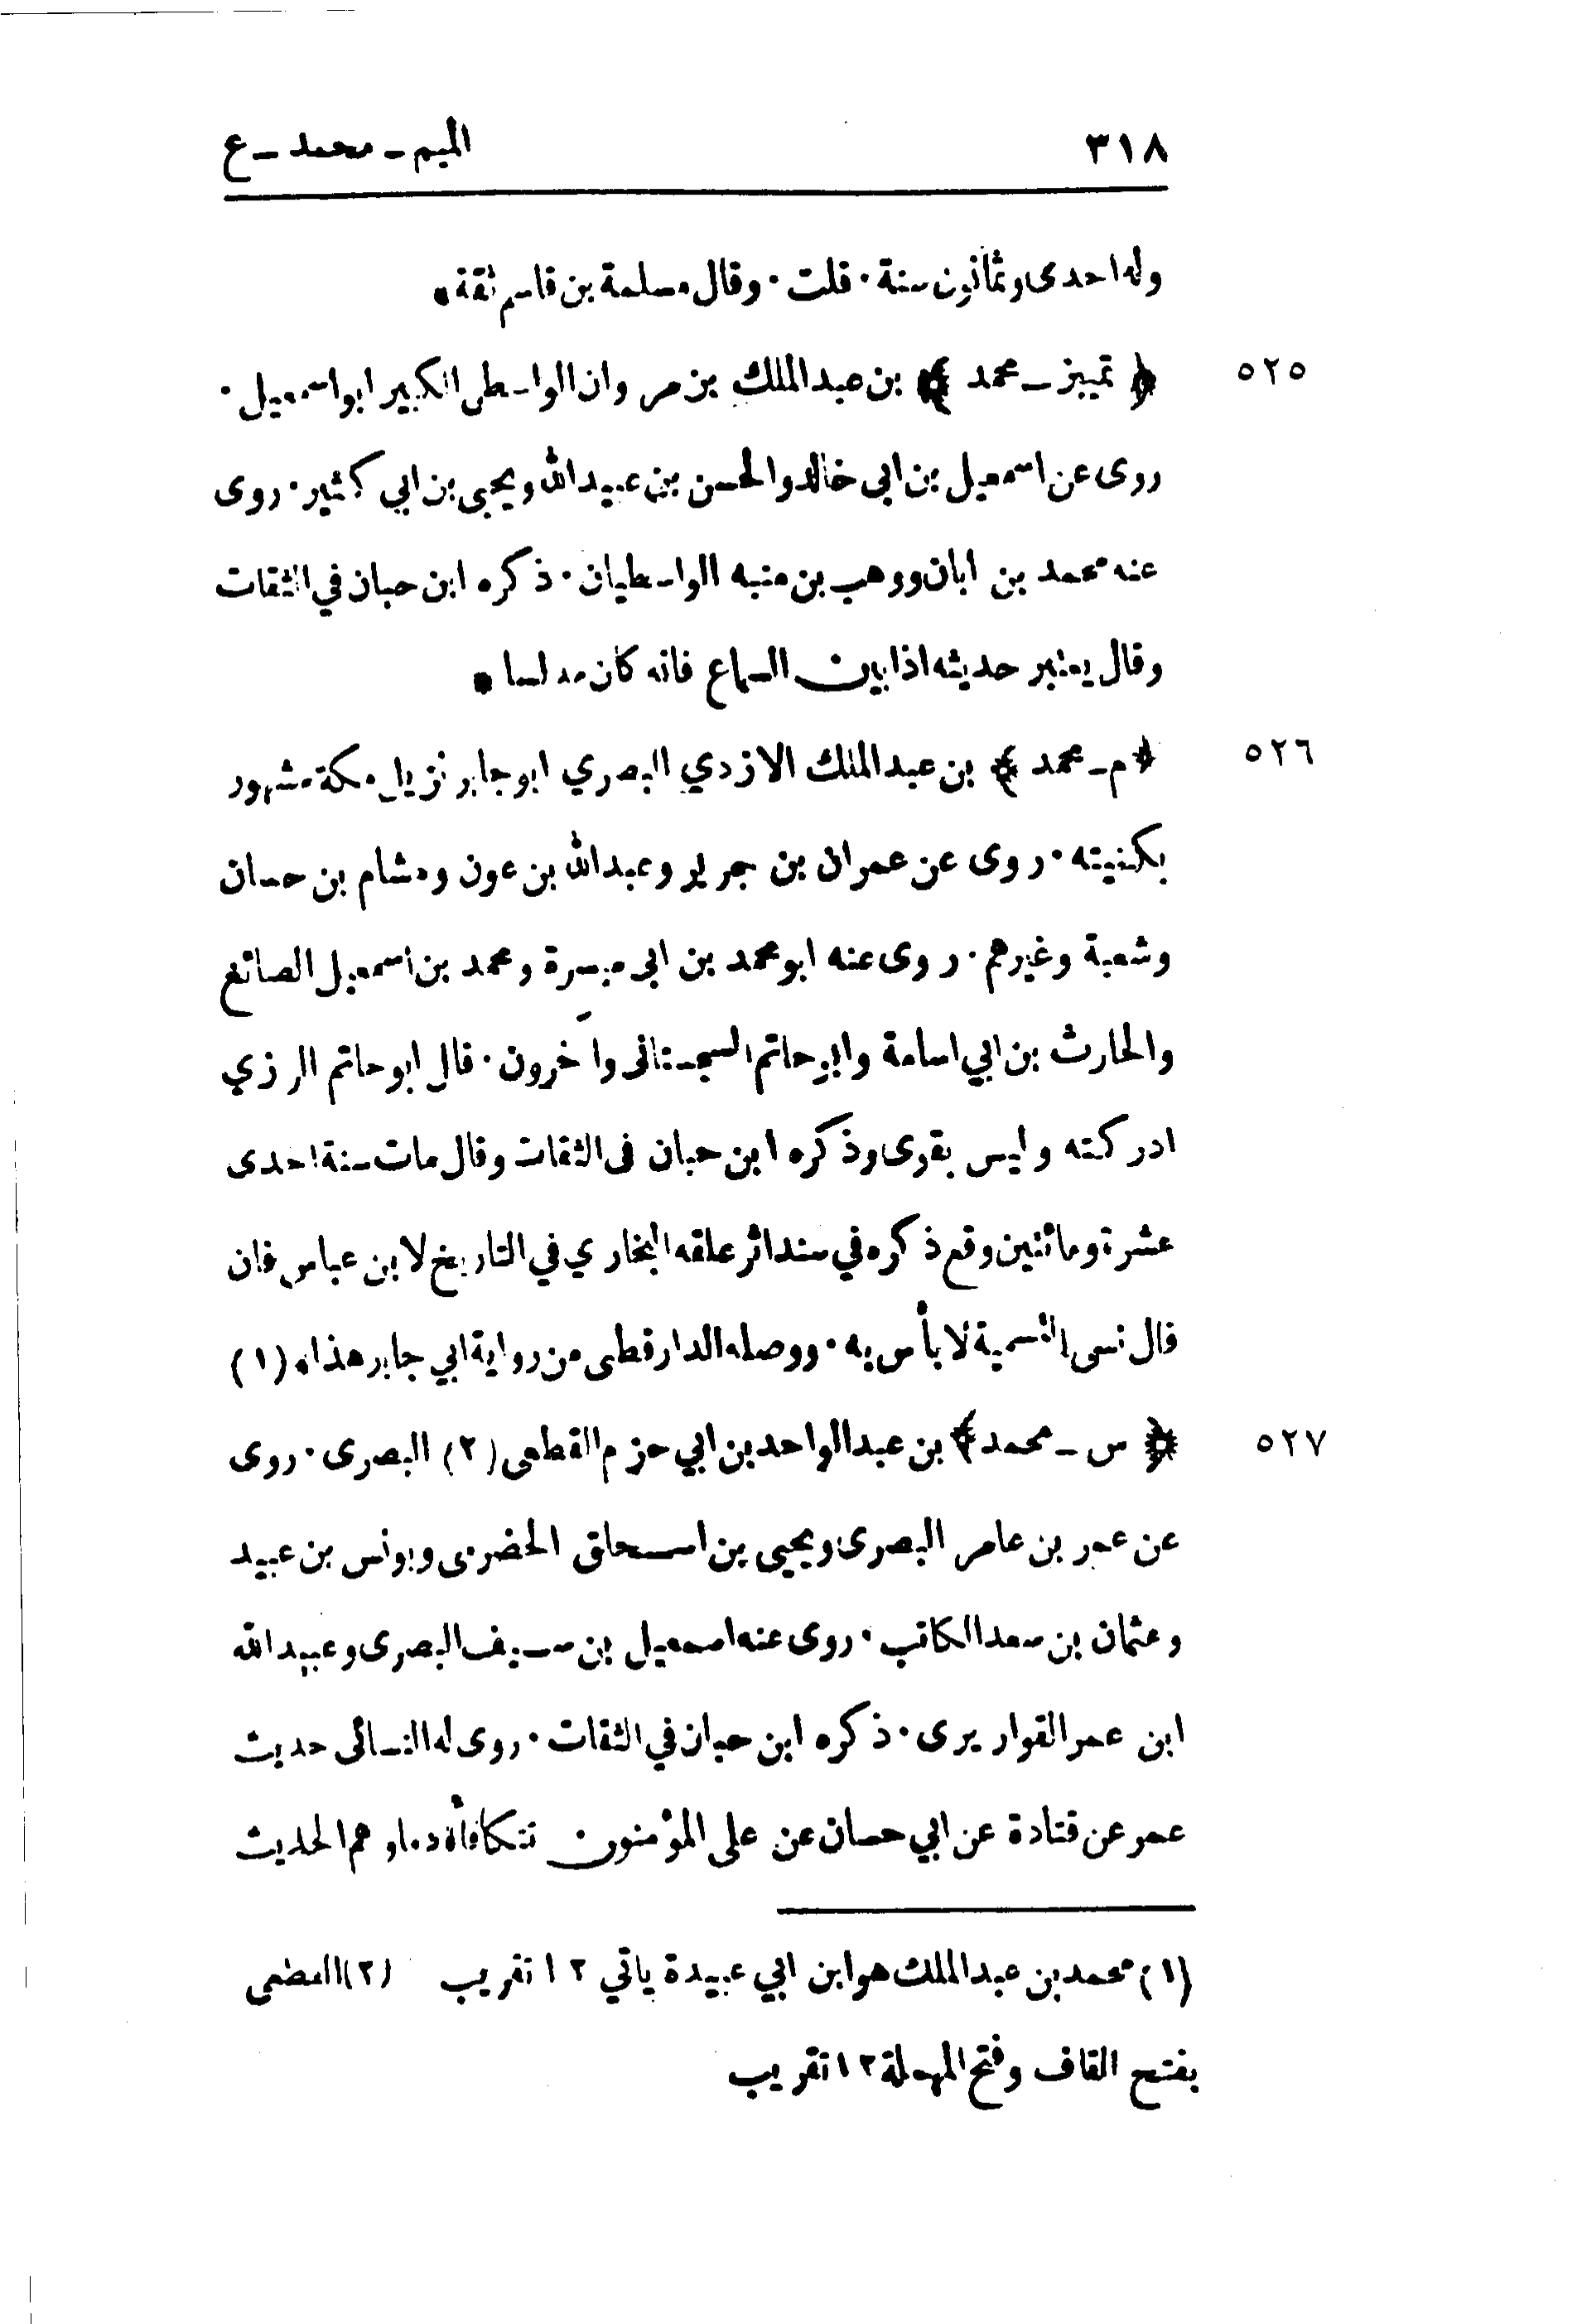 ٣١٨
الميم ــ محمد ــ ع
وله احدى وثمانون سنة · قلت · وقال مسلمة بن قاسم ثقة *
٥٢٥
﴿ تمييز ــ محمد ﴾ بن عبد الملك بن مروان الواسطى الكبير ابو اسمعيل ·
روى عن اسمعيل بن ابى خالد والحسن بن عبيد الله ويحيى بن ابى كثير · روى
عنه محمد بن ابان ووهب بن منبه الواسطيان · ذكره ابن حبان في الثقات
وقال يعتبر حديثه اذا بين السماع فانه كان مدلسا *
٥٢٦
﴿ م ــ محمد ﴾ بن عبد الملك الازدي البصري ابو جابر نزيل مكة مشهور
بكنيته · روى عن عمران بن جرير وعبد الله بن عون وهشام بن حسان
وشعبة وغيرهم · روى عنه ابو محمد بن ابى ميسرة ومحمد بن اسمعيل الصائغ
والحارث بن ابي اسامة وابو حاتم السجستانى وآخرون · قال ابو حاتم الرزي
ادركته وليس بقوى وذكره ابن حبان فى الثقات وقال مات سنة احدى
عشرة ومائتين وقع ذكره في سند اثر علقه البخاري في التاريخ لابن عباس فان
قال نسى التسمية لا بأس به · ووصله الدارقطى من رواية ابي جابر هذا * (١)
٥٢٧
﴿ س ــ محمد ﴾ بن عبد الواحد بن ابي حزم القطعى (٢) البصرى · روى
عن عمر بن عامر البصرى ويحيى بن اسحاق الحضرمى ويونس بن عبيد
وعثمان بن سعد الكاتب · روى عنه اسمعيل بن سيف البصرى وعبيد الله
ابن عمر القواريرى · ذكره ابن حبان في الثقات · روى له النسائى حديث
عمر عن قتادة عن ابي حسان عن على المؤمنون تتكافأ دماؤهم الحديث
(١) محمد بن عبد الملك هو ابن ابي عبيدة ياتي ١٢ تقريب (٢) القطعى
بفتح القاف وفتح المهملة ١٢ تقريب